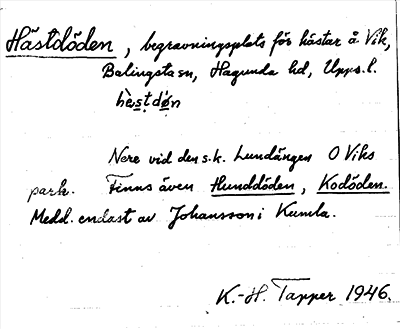 Hästdöden, begravningsplats för hästar å Vik,
Balingsta sn, Hagunda hd, Upps. l.
Nere vid den s.k. Lundängen O Viks
park. Finns även Hunddöden, Kodöden.
Medd. endast av Johansson i Kumla.
K.-H. Tapper 1946.